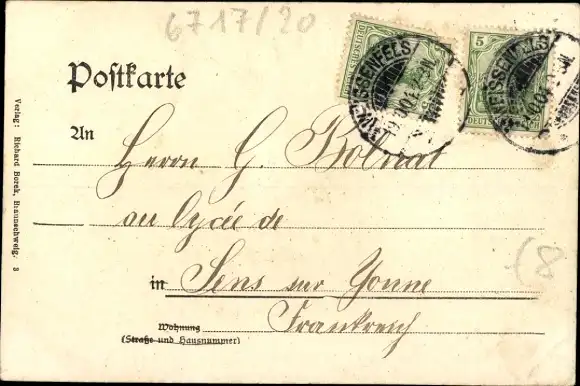 6717/20
Postkarte
An
Herrn G.
au Lycée de
in Sens sur Yonne
Frankreich
Wohnung
(Straße und Hausnummer)
Verlag: Richard Borek, Braunschweig. 3
WEISSENFELS
WEISSENFELS
5
(8